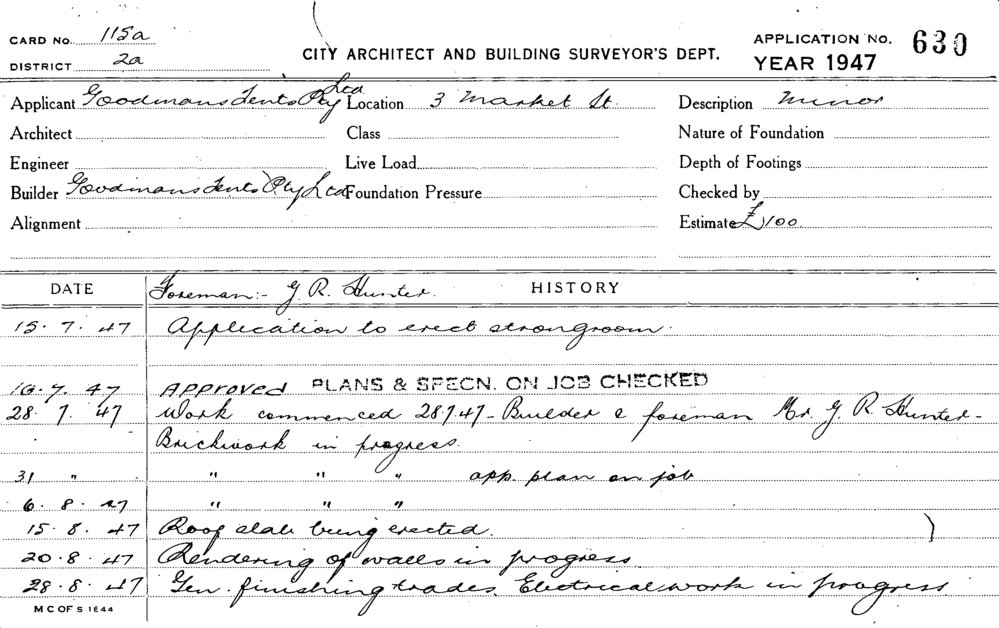 CARD No. 115a
DISTRICT 2a
CITY ARCHITECT AND BUILDING SURVEYOR'S DEPT.
APPLICATION No. 630
YEAR 1947
Applicant Goodmans Tents Pty Ltd Location 3 Market St. Description Minor
Architect Class Nature of Foundation
Engineer Live Load Depth of Footings
Builder Goodmans Tents Pty Ltd Foundation Pressure Checked by
Alignment Estimate £100
DATE Foreman:- G R. Hunter. HISTORY
15. 7. 47 Application to erect strongroom.
16. 7. 47 APPROVED PLANS & SPECN. ON JOB CHECKED
28. 7. 47 Work commenced 28.7.47 - Builder & foreman Mr. G R. Hunter -
Brickwork in progress.
31 " " " " app. plan on job
6. 8. 47 " " "
15. 8. 47 Roof slab being erected.
20. 8. 47 Rendering of walls in progress
28. 8. 47 Gen. finishing trades. Electrical work in progress
M C OF S 1844